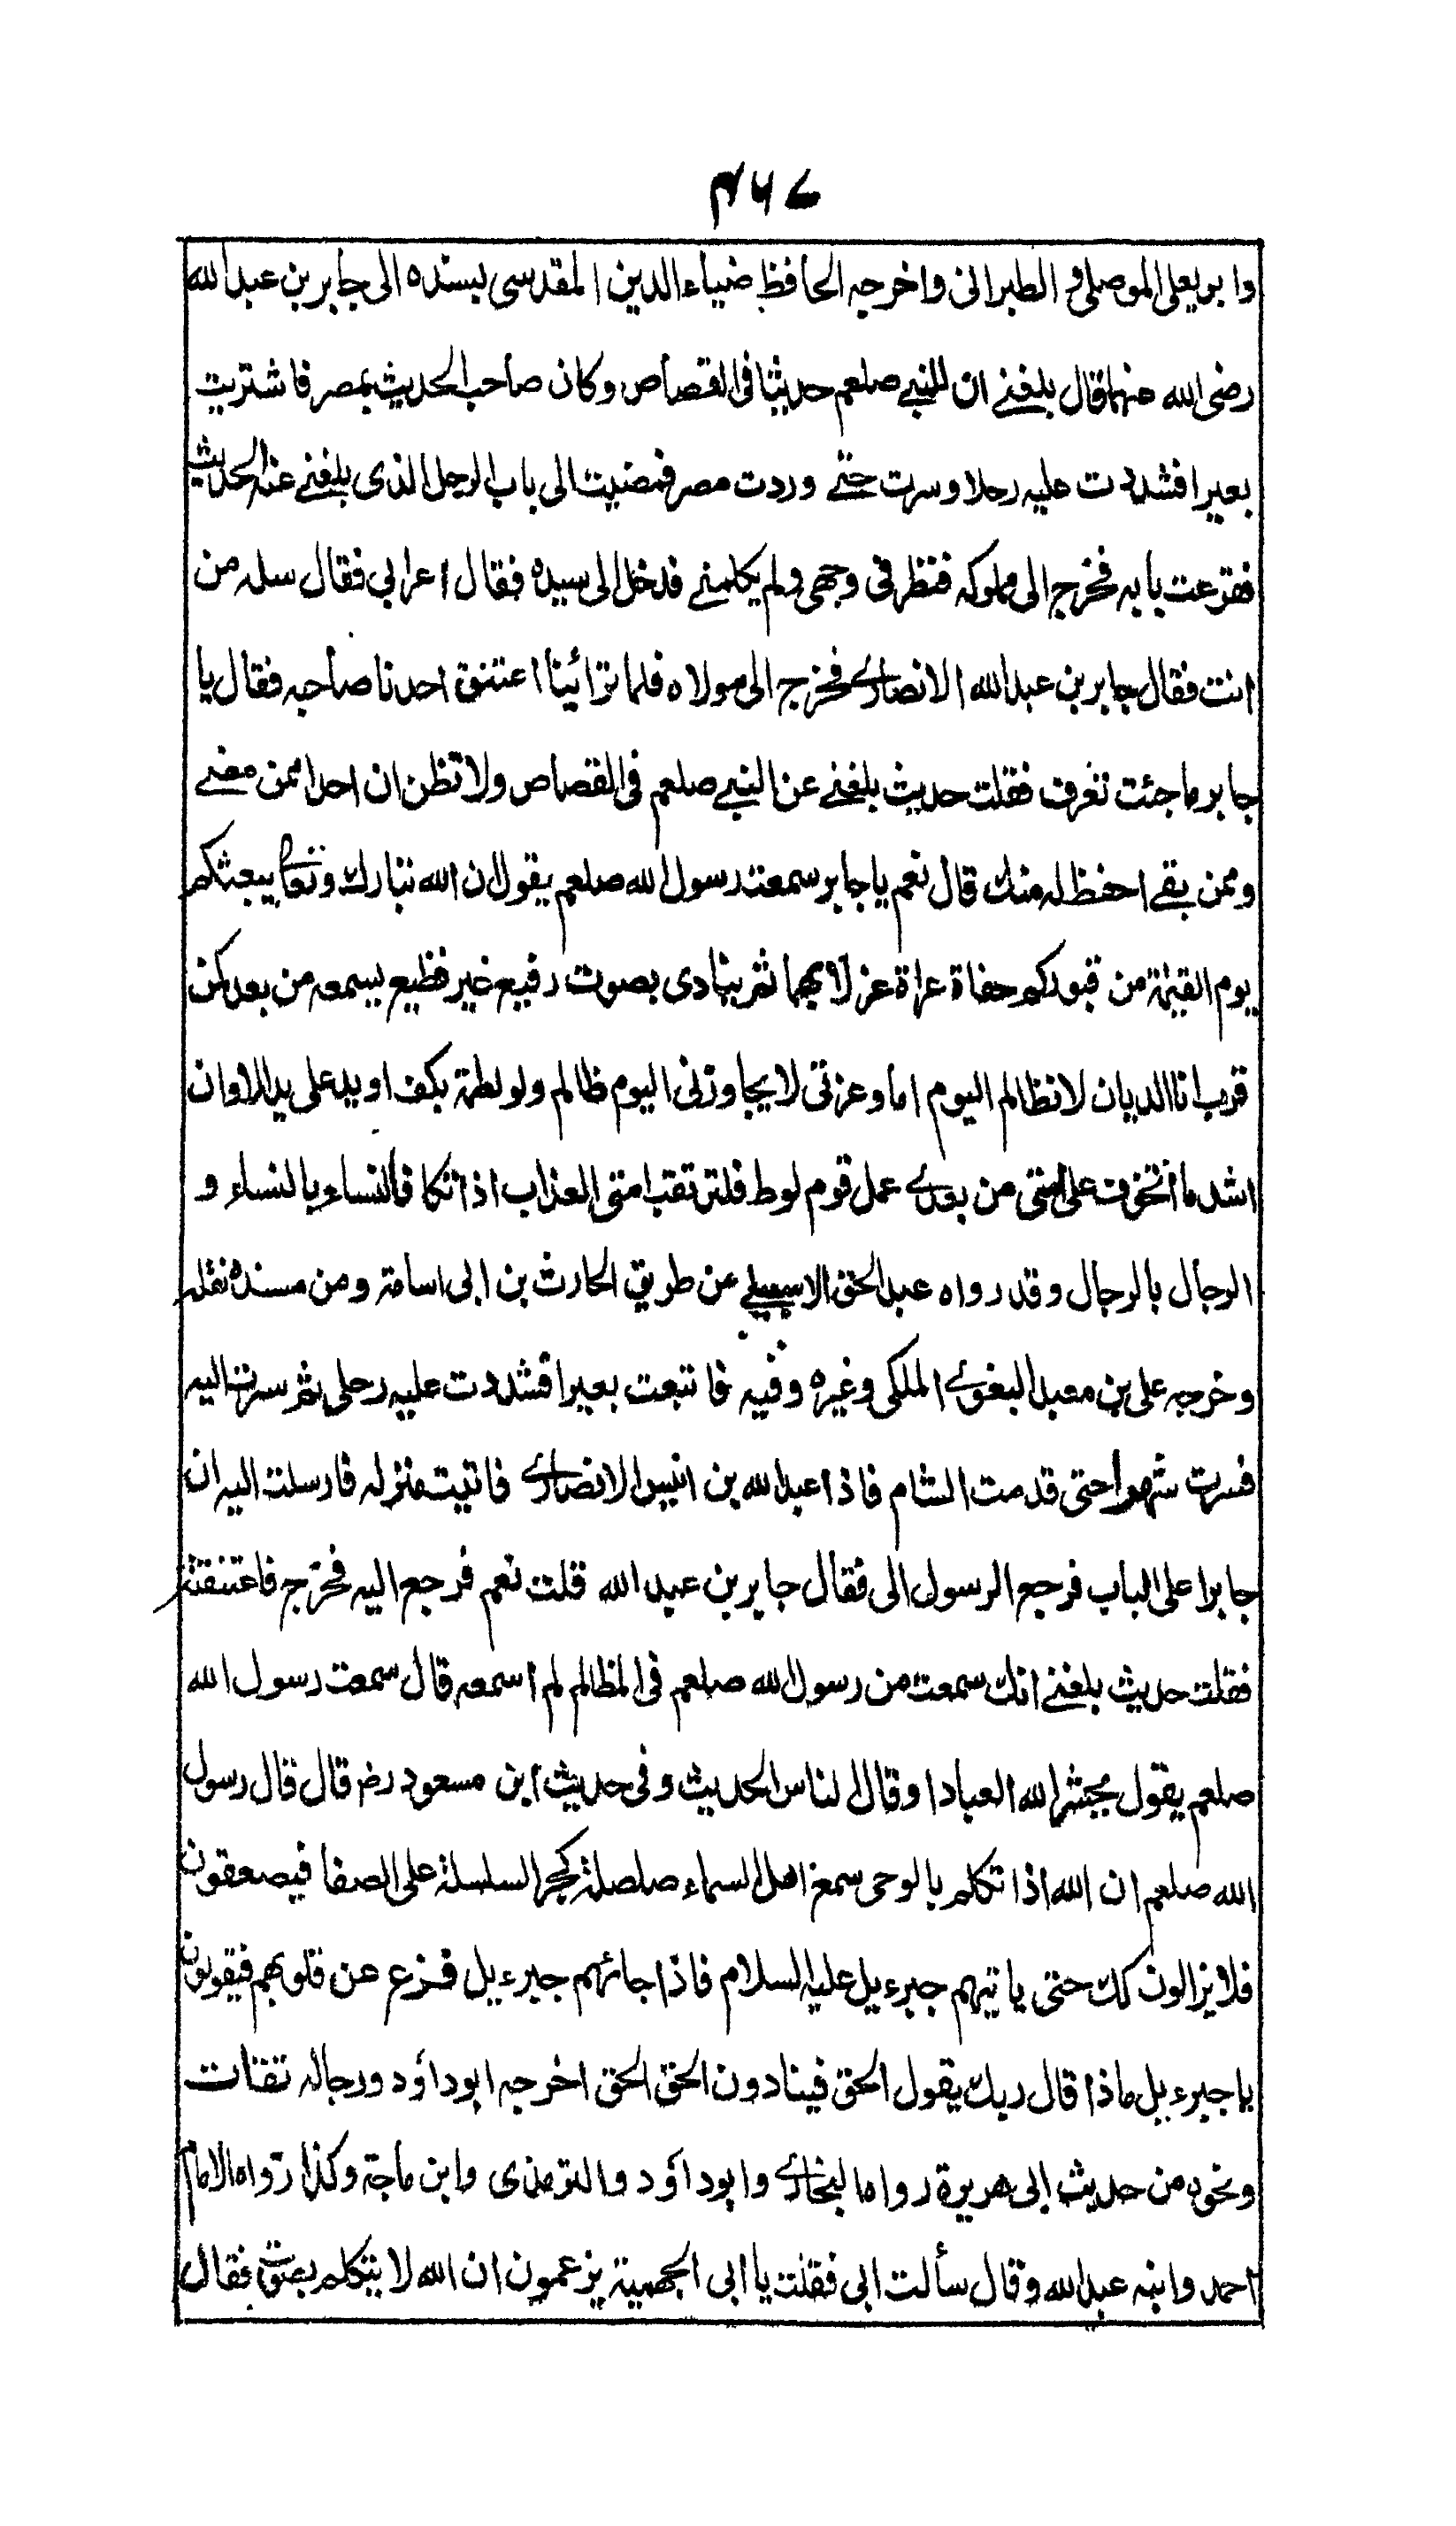 ۴۶۷
وابو يعلى الموصلى و الطبرانى واخرجه الحافظ ضياء الدين المقدسى بسنده الى جابر بن عبد الله
رضى الله عنهما قال بلغنے ان للنبے صلعم حديثا فى القصاص وكان صاحب الحديث بمصر فاشتريت
بعيرا فشددت عليه رحلا وسرت حتے وردت مصر فمضيت الى باب الرجل الذى بلغنے عنه الحديث
فقرعت بابه فخرج الى مملوكه فنظر فى وجهى ولم يكلمنے فدخل الى سيده فقال اعرابى فقال سله من
انت فقال جابر بن عبد الله الانصارے فخرج الى مولاه فلما ترائينا اعتنق احدنا صاحبه فقال يا
جابر ما جئت تعرف فقلت حديث بلغنے عن النبے صلعم فى القصاص ولا تظن ان احدا ممن مضے
وممن بقے احفظ له منك قال نعم يا جابر سمعت رسول الله صلعم يقول ان الله تبارك وتعالى يبعثكم
يوم القيمة من قبوركم حفاة عراة عزلا بهما ثم ينادى بصوت رفيع غير فظيع يسمعه من بعد كمن
قرب انا الديان لا تظالم اليوم اما وعزتى لا يجاوزنى اليوم ظالم ولو لطمة بكف او يد على يد الا وان
اشد ما اتخوف على امتى من بعدے عمل قوم لوط فلترتقب امتى العذاب اذا تكافأ النساء بالنساء و
الرجال بالرجال وقد رواه عبد الحق الاسبيلے من طريق الحارث بن ابى اسامة ومن مسنده نقله
وخرجه على بن معبد البغوے الملكى وغيره وفيه فاتبعت بعيرا فشددت عليه رحلى ثم سرت اليه
فسرت شهرا حتى قدمت الشام فاذا عبد الله بن انيس الانصارے فاتيت منزله فارسلت اليه ان
جابرا على الباب فرجع الرسول الى فقال جابر بن عبد الله قلت نعم فرجع اليه فخرج فاعتنقته
فقلت حديث بلغنے انك سمعت من رسول الله صلعم فى المظالم لم اسمعه قال سمعت رسول الله
صلعم يقول يحشر الله العباد او قال الناس الحديث وفى حديث ابن مسعود رض قال قال رسول
الله صلعم ان الله اذا تكلم بالوحى سمع اهل السماء صلصلة كجر السلسلة على الصفا فيصعقون
فلا يزالون كك حتى ياتيهم جبرءيل عليه السلام فاذا جائهم جبرءيل فزع عن قلوبهم فيقولون
يا جبرءيل ماذا قال ربك يقول الحق فينادون الحق الحق اخرجه ابو داؤد ورجاله ثقات
ونحوه من حديث ابى هريرة رواه البخارے وابو داؤد والترمذى وابن ماجة وكذا رواه الامام
احمد وابنه عبد الله وقال سألت ابى فقلت يا ابى الجهمية يزعمون ان الله لا يتكلم بصوت فقال